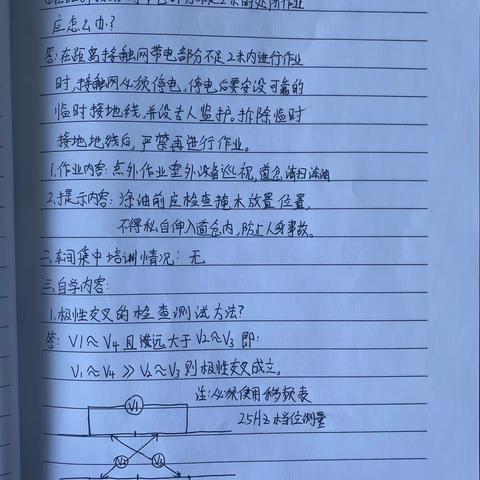 应怎么办?
答:在距离接触网带电部分不足2米内进行作业
时,接触网必须停电,停电后要安设可靠的
临时接地线,并设专人监护。拆除临时
接地地线后,严禁再进行作业。
1.作业内容:室外作业室外设备巡视,道岔清扫涂油
2.提示内容:涂油前应检查掩木放置位置,
不得私自伸入道岔内,防止人身事故。
二.车间集中培训情况:无
三.自学内容:
1.极性交叉的检查测试方法?
答:V1≈V4且远远大于V2≈V3即:
V1≈V4≫V2≈V3则极性交叉成立。
注:必须使用移频表
25Hz档位测量
V1
V2
V3